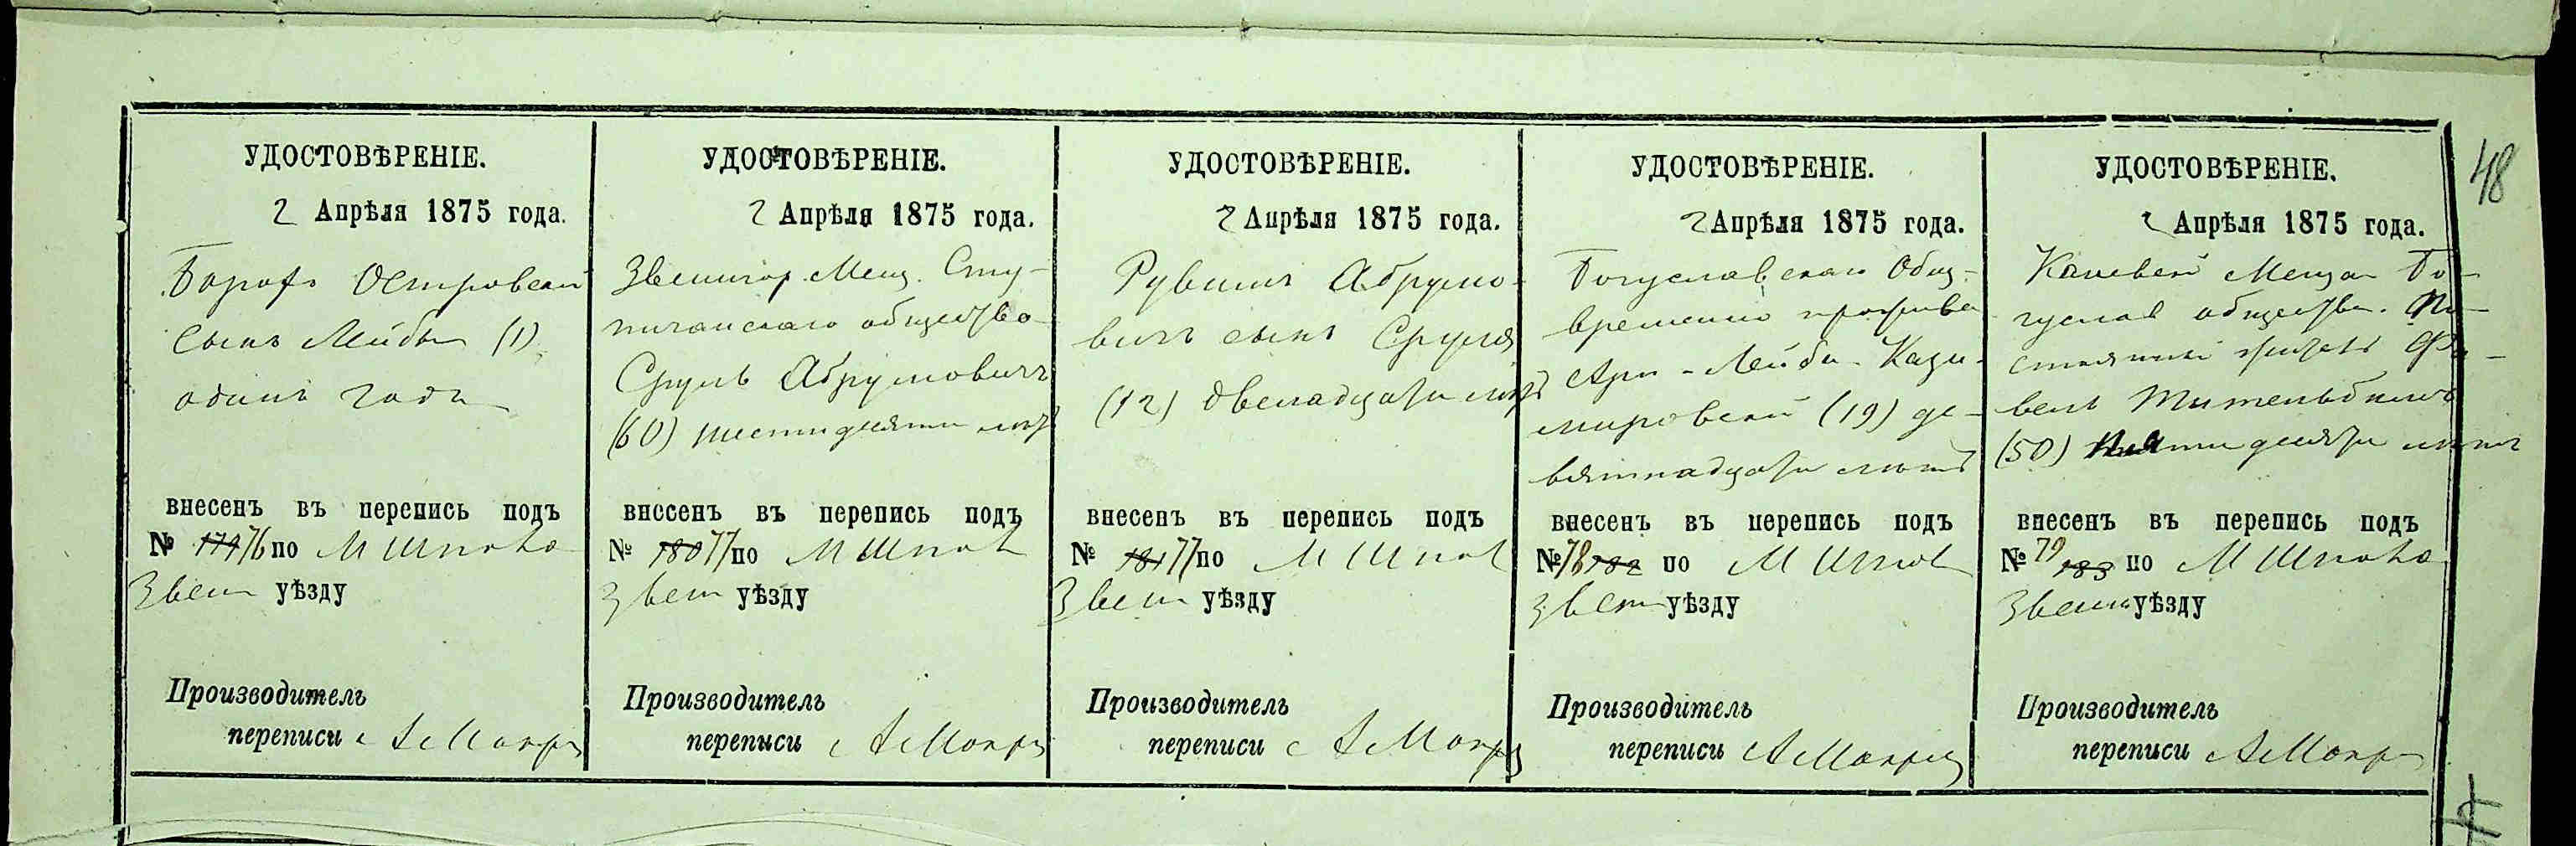 48
УДОСТОВѢРЕНІЕ.
2 Апрѣля 1875 года.
Борохъ Островскій
сынъ Лейбы (1)
одинъ годъ
внесенъ въ перепись подъ
№ 179 76 по М Шпола
Звен уѣзду
Производитель
переписи
УДОСТОВѢРЕНІЕ.
2 Апрѣля 1875 года.
Звенигор. Мещ.
общества
Сруль Абрумовичъ
(60) шестидесяти лѣтъ
внесенъ въ перепись подъ
№ 180 77 по М Шпол
Звен уѣзду
Производитель
переписи
УДОСТОВѢРЕНІЕ.
2 Апрѣля 1875 года.
Рувинъ Абрумо-
вичъ сынъ Сруля
(12) двенадцати лѣтъ
внесенъ въ перепись подъ
№ 181 77 по М Шпол
Звен уѣзду
Производитель
переписи
УДОСТОВѢРЕНІЕ.
2 Апрѣля 1875 года.
Богуславскаго Общ.
временно прожива
Лейба Кази-
мировскій (19) де-
вятнадцати лѣтъ
внесенъ въ перепись подъ
№ 78 182 по М Шпол
Звен уѣзду
Производитель
переписи
УДОСТОВѢРЕНІЕ.
2 Апрѣля 1875 года.
Каневск Мещан Бо-
гуслав общества. По-
стоянный житель
вель
(50) Пятидесяти лѣтъ
внесенъ въ перепись подъ
№ 79 183 по М Шпола
Звен уѣзду
Производитель
переписи